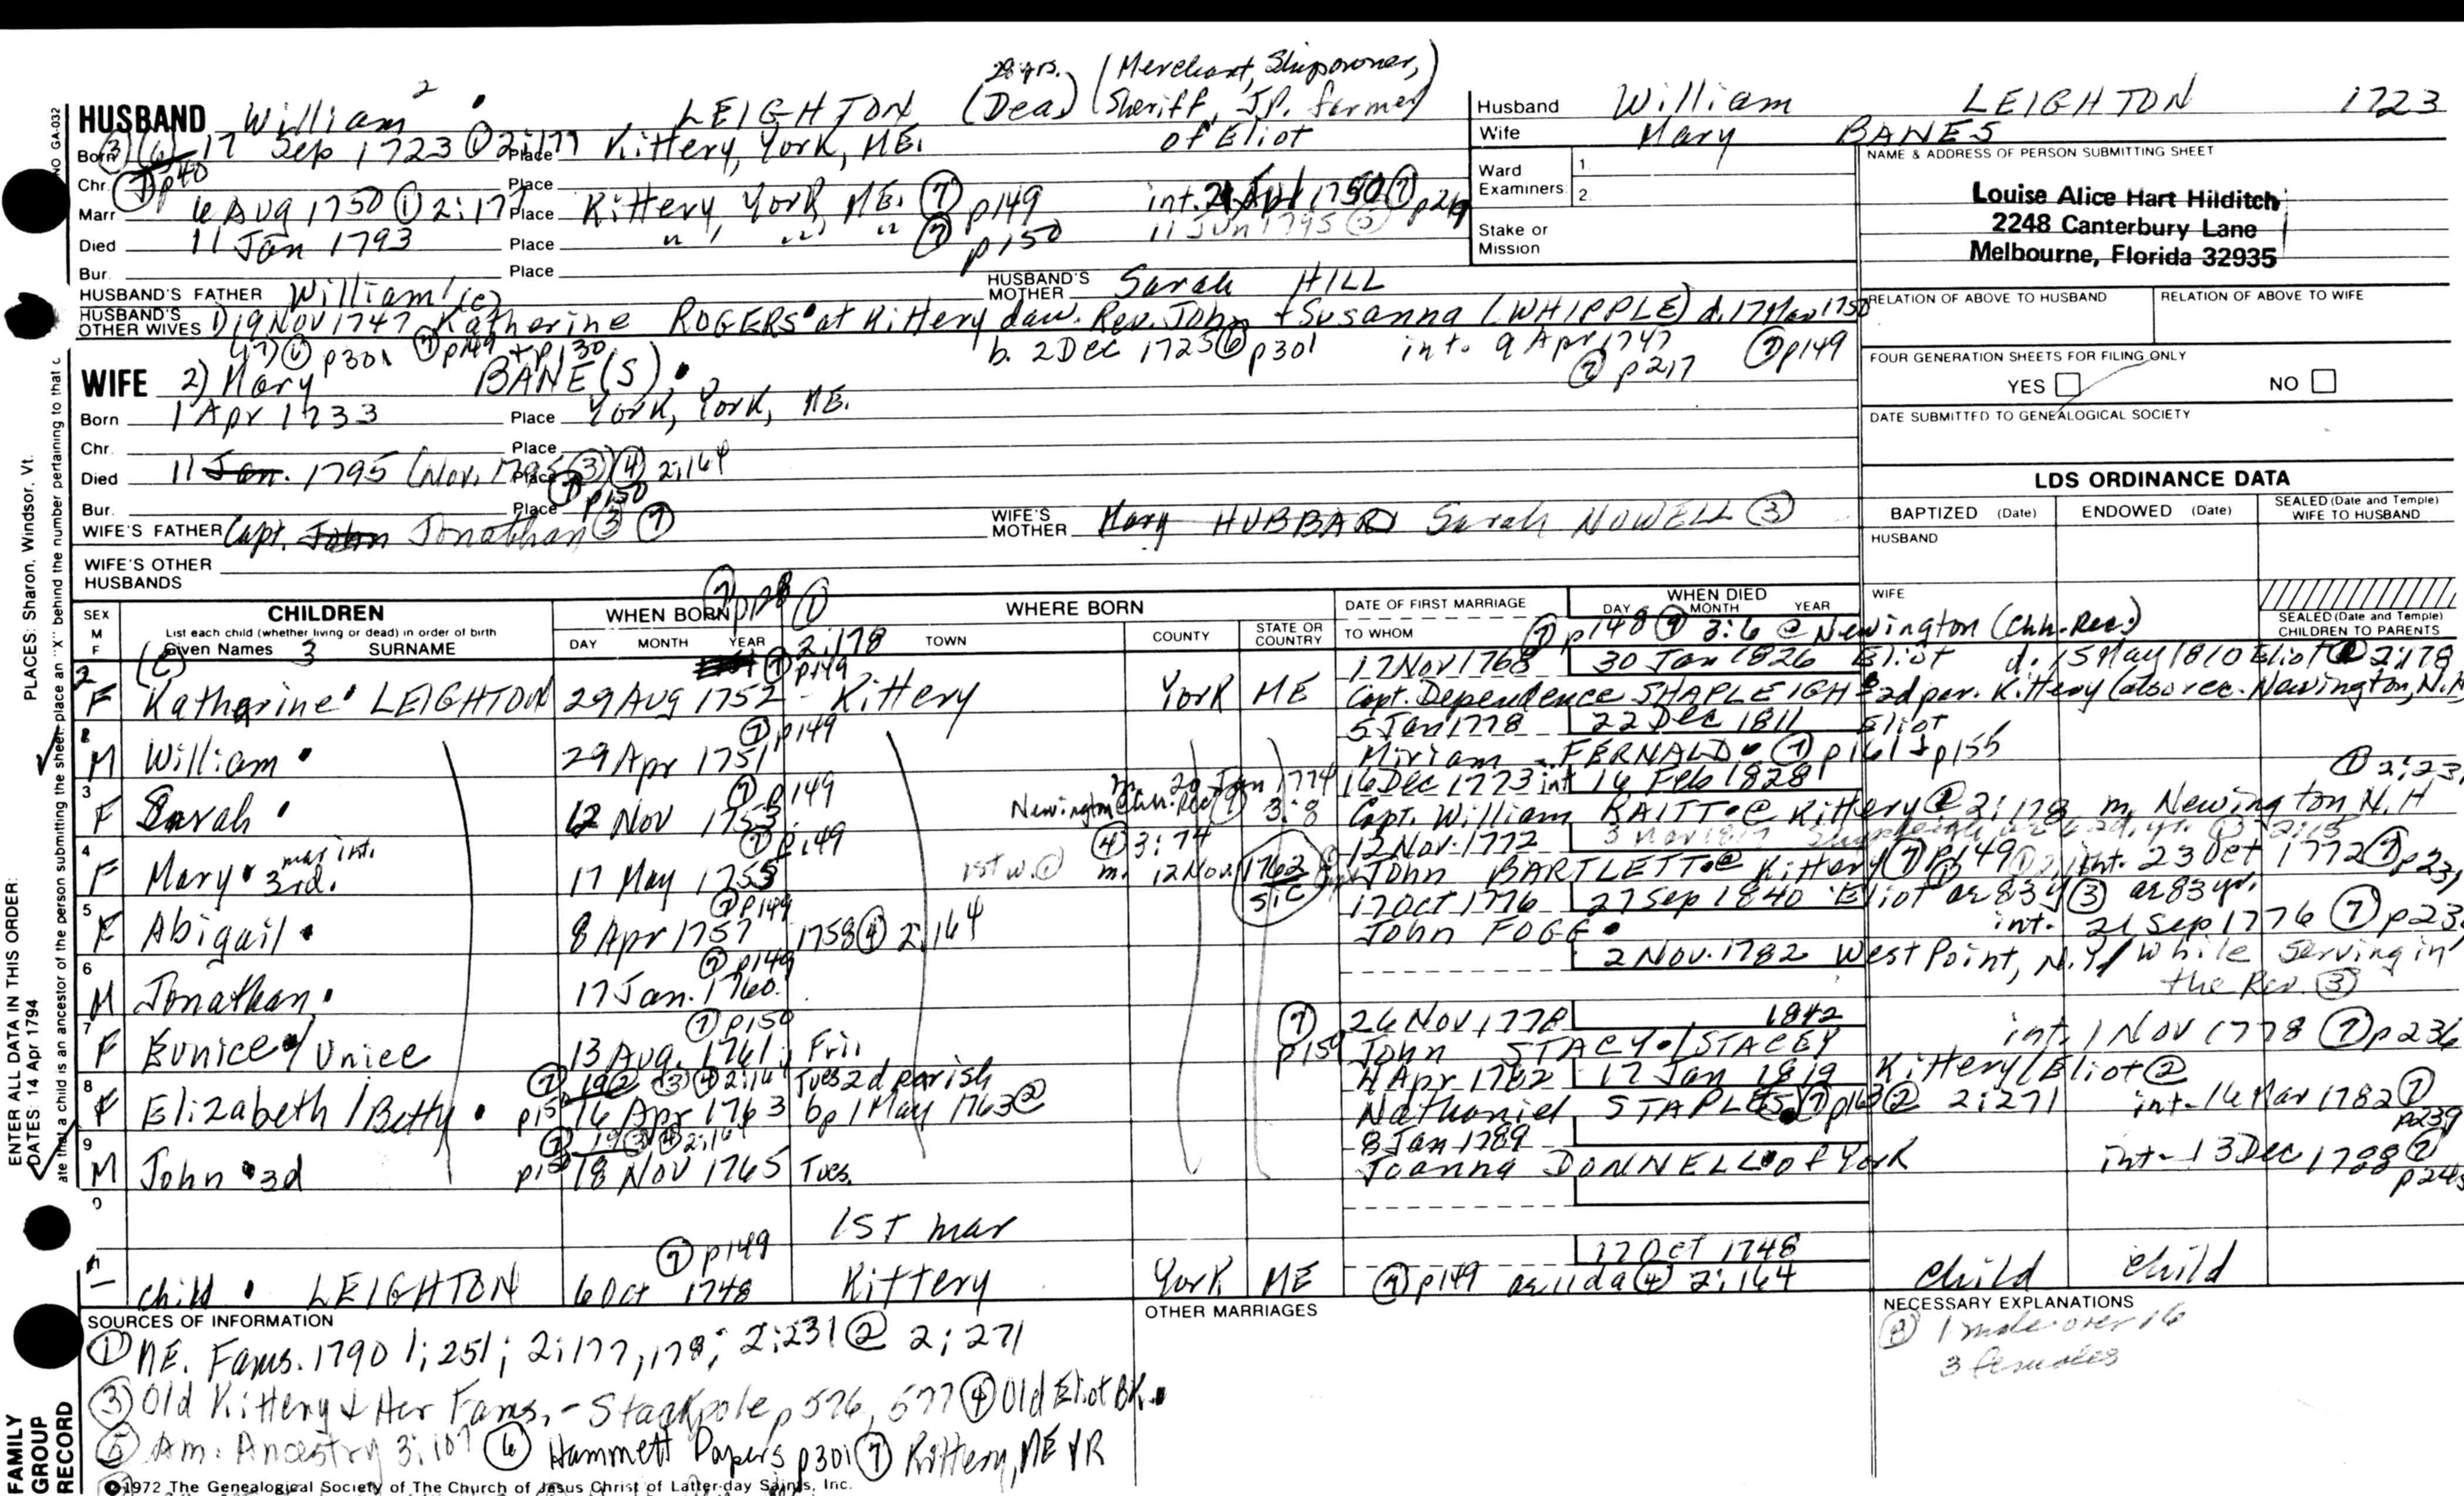 28 yrs. (Merchant, Shipowner,
HUSBAND William 2 LEIGHTON (Deac) (Sheriff, J.P. farmer
Born ③ ⑥ 17 Sep 1723 ① 2:177 Place Kittery, York, ME. of Eliot
Chr. ⑦ p40 Place
Marr. 6 Aug 1750 ① 2:177 Place Kittery York, ME. ⑦ p149 int. 1750 ⑦
Died 11 Jan 1793 Place " " " ⑦ p150 11 Jun 1795
Bur. Place
HUSBAND'S FATHER William 1 (c) HUSBAND'S MOTHER Sarah HILL
HUSBAND'S OTHER WIVES 1) 19 Nov 1747 Katherine ROGERS at Kittery daw. Rev. John + Susanna (WHIPPLE) d. 17 Mar 1750
⑥ p301 ⑦ p149 + p130 b. 2 Dec 1725 ⑥ p301 int. 9 Apr 1747 ⑦ p217 ⑦ p149
Husband William LEIGHTON 1723
Wife Mary BANES
Ward Examiners 1.
2.
Stake or Mission
NAME & ADDRESS OF PERSON SUBMITTING SHEET
Louise Alice Hart Hilditch
2248 Canterbury Lane
Melbourne, Florida 32935
RELATION OF ABOVE TO HUSBAND RELATION OF ABOVE TO WIFE
FOUR GENERATION SHEETS FOR FILING ONLY
YES NO
DATE SUBMITTED TO GENEALOGICAL SOCIETY
WIFE 2) Mary BANE(S)
Born 1 Apr 1733 Place York, York, ME.
Chr. Place
Died 11 Jan. 1795 (Nov. 1795 ③ ④ 2:164 Place
⑦ p150
Bur. Place
WIFE'S FATHER Capt. John Jonathan ③ ⑦ WIFE'S MOTHER Mary HUBBARD Sarah NOWELL ③
WIFE'S OTHER HUSBANDS
LDS ORDINANCE DATA
BAPTIZED (Date) ENDOWED (Date) SEALED (Date and Temple) WIFE TO HUSBAND
HUSBAND
WIFE
SEALED (Date and Temple) CHILDREN TO PARENTS
SEX M F CHILDREN WHEN BORN WHERE BORN DATE OF FIRST MARRIAGE WHEN DIED
List each child (whether living or dead) in order of birth
Given Names 3 SURNAME DAY MONTH YEAR TOWN COUNTY STATE OR COUNTRY TO WHOM DAY MONTH YEAR
① 2:178 ⑦ p148 3:6 @ Newington (Chh. Rec.)
⑦ p149 17 Nov 1768 30 Jan 1826 Eliot d. 15 May 1810 Eliot 2:178
2 F Katherine LEIGHTON 29 Aug 1752 Kittery York ME Capt. Dependence SHAPLEIGH 2d par. Kittery (also rec. Newington, N.H.
⑦ p149 5 Jan 1778 22 Dec 1811 Eliot
M William 29 Apr 1751 Miriam FERNALD ⑦ p161 + p155
⑦ p149 m. 20 Jan 1774 16 Dec 1773 int 16 Feb 1828 ① 2:23
3 F Sarah 12 Nov 1753 Newington Chh. Rec 3:8 Capt. William RAITT @ Kittery 2:178 m. Newington N.H
⑦ p149 ④ 3:74 12 Nov. 1772
4 F Mary 3rd. mar int. 17 May 1755 1st w. m. 12 Nov. 1762 sic John BARTLETT @ Kittery ⑦ p149 int. 23 Oct 1772 ⑦
⑦ p149 17 Oct 1776 27 Sep 1840 Eliot ae 83 y ③ ae 83 yr.
5 F Abigail 8 Apr 1757 1758 ④ 2:164 John FOGG int. 21 Sep 1776 ⑦
⑦ p149 2 Nov. 1782 West Point, N.Y. while serving in
6 M Jonathan 17 Jan. 1760 the Rev. ③
⑦ p150 26 Nov 1778 1842
7 F Eunice / Unice 13 Aug. 1761 Fri. ⑦ p150 John STACY / STACEY int. 1 Nov 1778 ⑦ p236
Tues 2d parish 4 Apr 1782 17 Jan 1819 Kittery / Eliot
8 F Elizabeth / Betty 16 Apr 1763 bp 1 May 1763 Nathaniel STAPLES 2:271 int. 16 Mar 1782 ⑦ p239
8 Jan 1789
9 M John 3d 18 Nov 1765 Tues. Joanna DONNELL of York int. 13 Dec 1788 ⑦
1ST mar
⑦ p149 17 Oct 1748
1 child LEIGHTON 6 Oct 1748 Kittery York ME ⑦ p149 ae 11 da ④ 2:164 child child
SOURCES OF INFORMATION
① ME. Fams. 1790 1:251; 2:177, 178; 2:231 @ 2:271
③ Old Kittery & Her Fams. - Stackpole p 576, 577 ④ Old Eliot Bk.
⑤ Am. Ancestry 3:107 ⑥ Hammett Papers p301 ⑦ Kittery, ME VR
OTHER MARRIAGES
NECESSARY EXPLANATIONS
1 male over 16
3 females
1972 The Genealogical Society of The Church of Jesus Christ of Latter-day Saints, Inc.
NO GA-032
ENTER ALL DATA IN THIS ORDER:
PLACES: Sharon, Windsor, Vt.
DATES: 14 Apr 1794
ate that a child is an ancestor of the person submitting the sheet place an "X" behind the number pertaining to that c
FAMILY GROUP RECORD